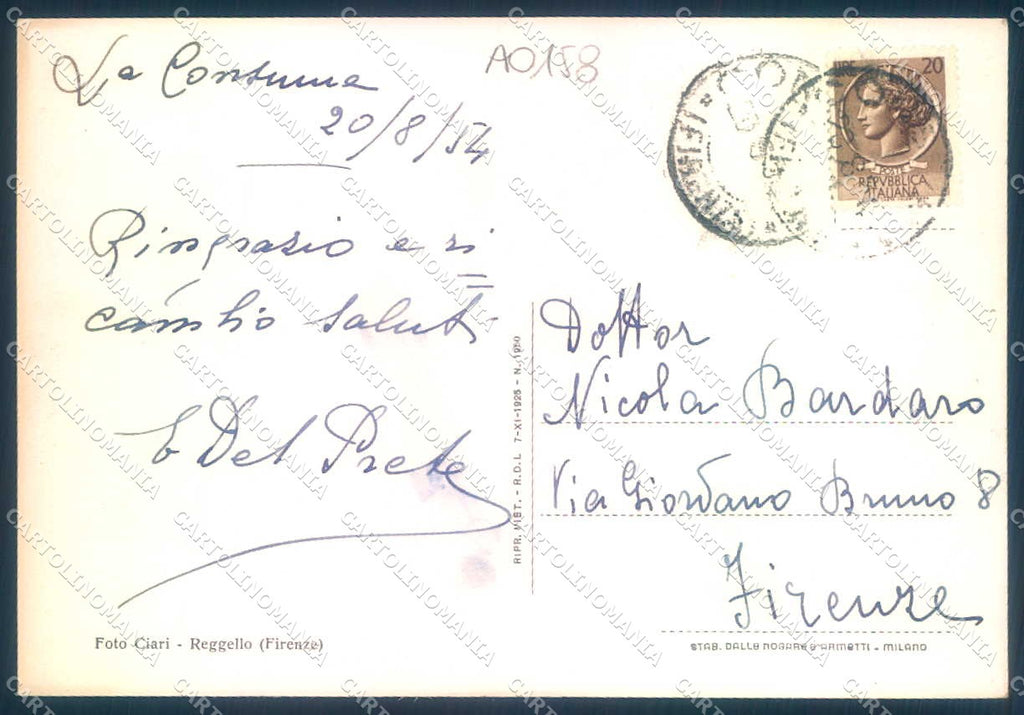 La Consuma
20/8/54
Ringrazio e ri
cambio saluti
E Del Prete
Foto Ciari - Reggello (Firenze)
A0158
LIRE 20
POSTE
REPVBBLICA
ITALIANA
RIPR. VIET. - R.D.L. 7-XI-1925 - N. 1950
Dottor
Nicola Bardaro
Via Giordano Bruno 8
Firenze
STAB. DALLE NOGARE & ARMETTI - MILANO
CARTOLINOMANIA